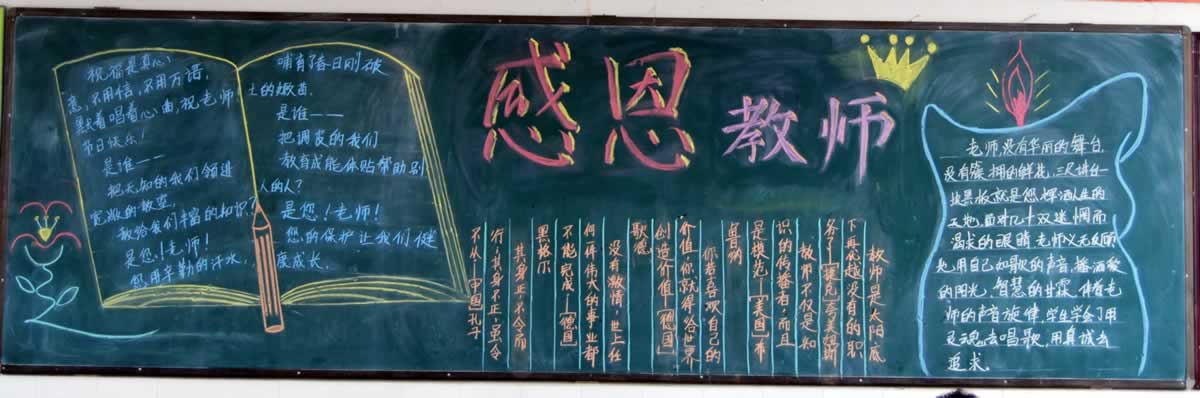 感恩
教师
祝福是真心
意,不用信,不用万语,
默默唱着心曲,祝老师
节日快乐!
是谁——
把无知的我们领进
宽敞的教室,
教给我们丰富的知识?
是您!老师!
您用辛勤的汗水,
哺育了春日刚破
土的嫩苗.
是谁——
把调皮的我们
教育成能体贴帮助别
人的人?
是您!老师!
您的保护让我们健
康成长.
教师是太阳底
下再优越没有的职
务了—[捷克]夸美纽斯
教师不仅是知
识的传播者,而且
是模范—[美国]布
鲁纳
你若喜欢自己的
价值,你就得给世界
创造价值—[德国]
歌德
没有激情,世上任
何一件伟大的事业都
不能完成—[德国]
黑格尔
其身正,不令而
行;其身不正,虽令
不从—[中国]孔子
老师,没有华丽的舞台,
没有簇拥的鲜花,三尺讲台一
块黑板就是您挥洒人生的
天地,面对几十双迷惘而
渴求的眼睛,老师义无反顾
地用自己如歌的声音,播洒爱
的阳光,智慧的甘霖,伴着老
师的声音旋律,学生学会了用
灵魂去唱歌,用真诚去
追求.